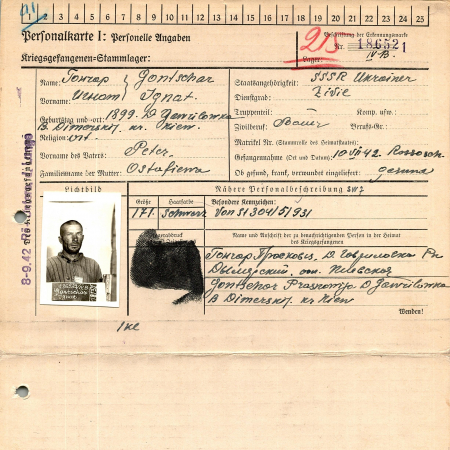 1 2 3 4 5 6 7 8 9 10 11 12 13 14 15 16 17 18 19 20 21 22 23 24 25
Personalkarte I: Personelle Angaben
Kriegsgefangenen-Stammlager:
Beschriftung der Erkennungsmarke
Nr. 186521
Lager: IV B.
213
Name: Гончар / Gontschar
Vorname: Игнат / Ignat
Geburtstag und -ort: 1899. D Gawrilowka
B. Dimerskij. kr. Kiew
Religion: ort.
Vorname des Vaters: Peter
Familienname der Mutter: Ostafiewa
Staatsangehörigkeit: SSSR Ukrainer
Dienstgrad: Zivie
Truppenteil: Komp. usw.:
Zivilberuf: Bauer Berufs-Gr.:
Matrikel Nr. (Stammrolle des Heimatstaates):
Gefangennahme (Ort und Datum): 10 VII 42 Rossosch
Ob gesund, krank, verwundet eingeliefert: gesund
8-9.42
Lichtbild
Nähere Personalbeschreibung
Größe Haarfarbe Besondere Kennzeichen:
171. Schwarz Von St 304/5/931
Name und Anschrift der zu benachrichtigenden Person in der Heimat des Kriegsgefangenen
Гончар Просковія, Д. Гавриловка Рн
Димерский. Киевская
Gontschor Praskowija D Gawrilowka
B Dimerskij. kr Kiew
Wenden!